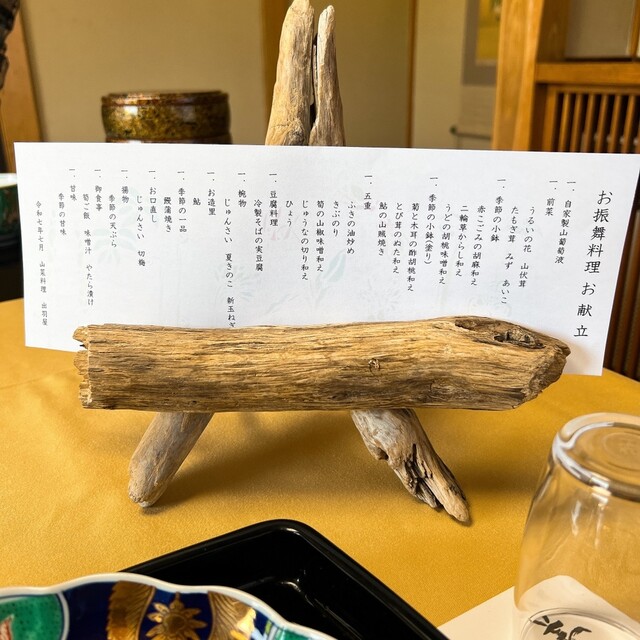 お振舞料理 お献立
一、自家製山葡萄液
一、前菜
うるいの花 山伏茸
たもぎ茸 みず あいこ
一、季節の小鉢
赤こごみの胡麻和え
二輪草からし和え
うどの胡桃味噌和え
一、季節の小鉢(塗り)
菊と木耳の酢胡桃和え
とび茸のぬた和え
鮎の山椒焼き
一、五重
ふきの油炒め
きぶのり
筍の山椒味噌和え
じゅうなの切り和え
ひょう
一、豆腐料理
冷製そばの実豆腐
一、椀物
じゅんさい 夏きのこ 新玉ねぎ
一、お造里
鮎
一、季節の一品
鰻蒲焼き
一、お口直し
じゅんさい 切麹
一、揚物
季節の天ぷら
一、御食事
筍ご飯 味噌汁 やたら漬け
一、甘味
季節の甘味
令和七年七月 山菜料理 出羽屋